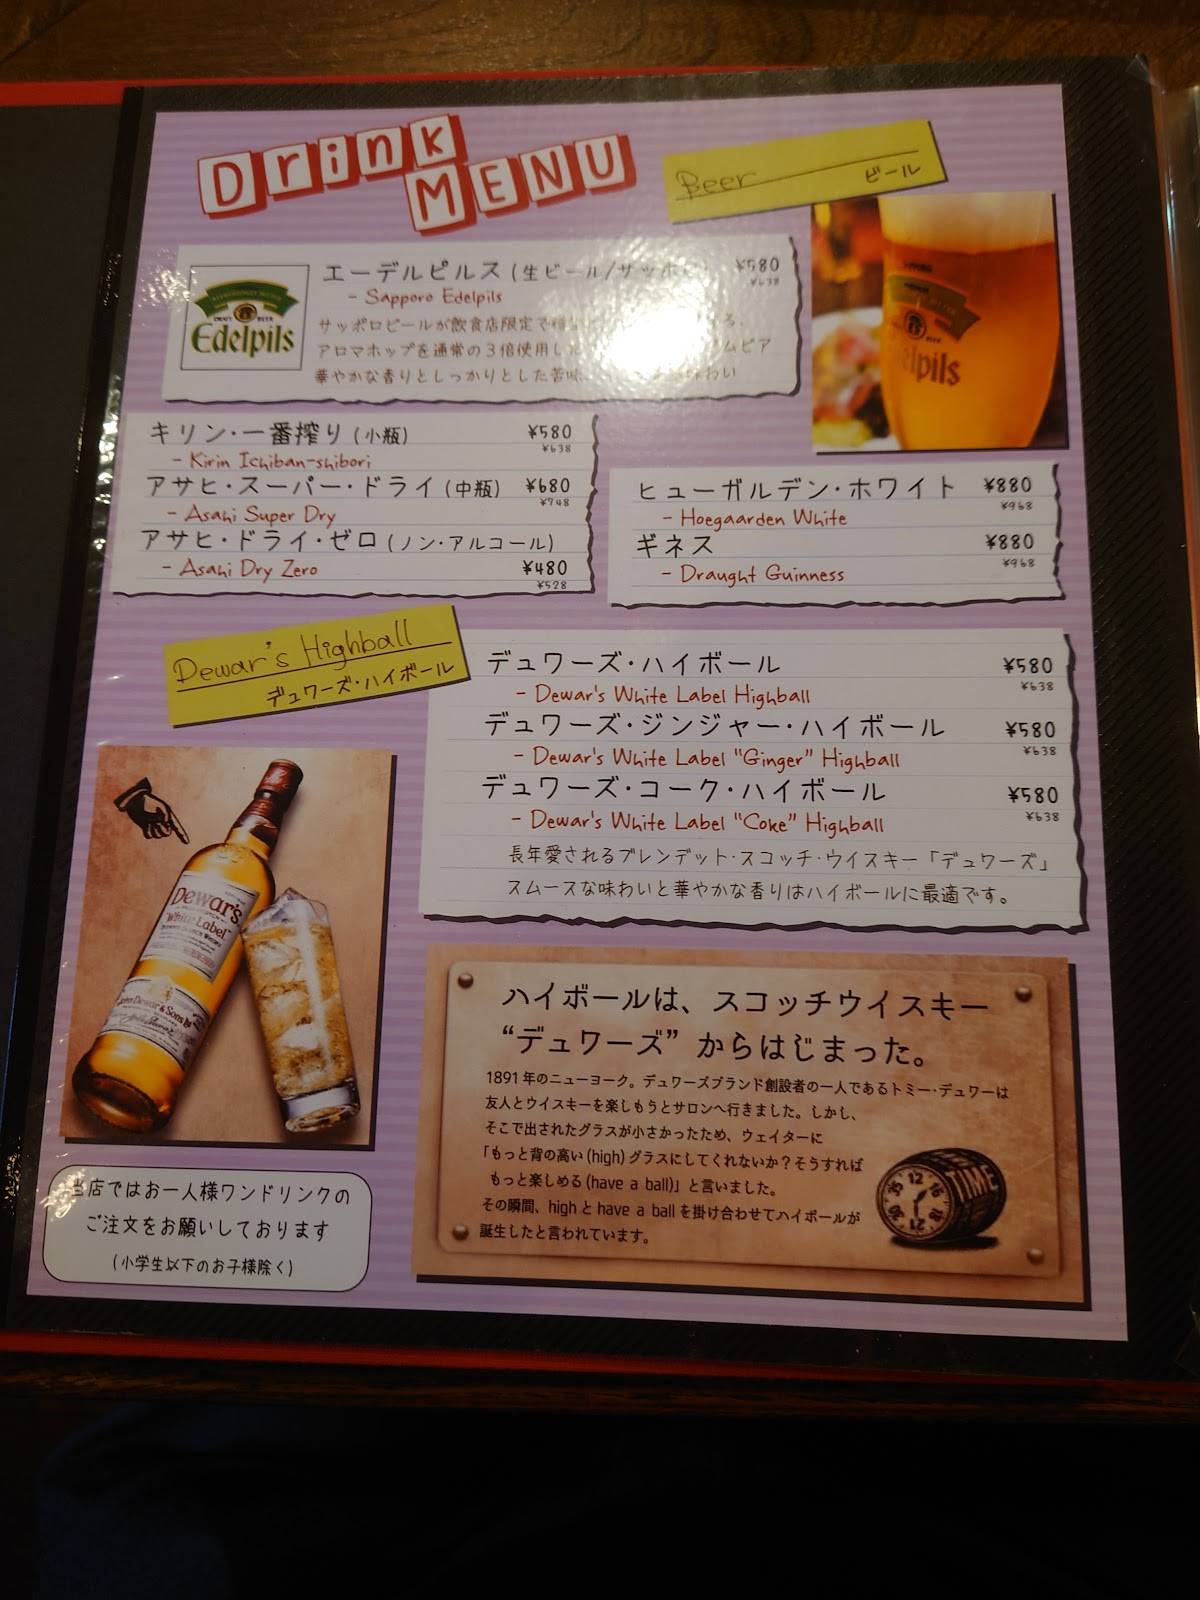 Drink
MENU
Beer
ビール
Edelpils
エーデルピルス (生ビール/サッポロ) ¥580
¥638
- Sapporo Edelpils
サッポロビールが飲食店限定で
アロマホップを通常の3倍使用し
華やかな香りとしっかりとした苦味
Edelpils
キリン・一番搾り (小瓶) ¥580
¥638
- Kirin Ichiban-shibori
アサヒ・スーパー・ドライ (中瓶) ¥680
¥748
- Asahi Super Dry
アサヒ・ドライ・ゼロ (ノン・アルコール)
- Asahi Dry Zero ¥480
¥528
ヒューガルデン・ホワイト ¥880
¥968
- Hoegaarden White
ギネス ¥880
¥968
- Draught Guinness
Dewar's Highball
デュワーズ・ハイボール
デュワーズ・ハイボール ¥580
¥638
- Dewar's White Label Highball
デュワーズ・ジンジャー・ハイボール ¥580
¥638
- Dewar's White Label "Ginger" Highball
デュワーズ・コーク・ハイボール ¥580
¥638
- Dewar's White Label "Coke" Highball
長年愛されるブレンデット・スコッチ・ウイスキー「デュワーズ」
スムースな味わいと華やかな香りはハイボールに最適です。
Dewar's
"White Label"
John Dewar & Sons Ltd
ハイボールは、スコッチウイスキー
“デュワーズ”からはじまった。
1891年のニューヨーク。デュワーズブランド創設者の一人であるトミー・デュワーは
友人とウイスキーを楽しもうとサロンへ行きました。しかし、
そこで出されたグラスが小さかったため、ウェイターに
「もっと背の高い(high)グラスにしてくれないか?そうすれば
もっと楽しめる(have a ball)」と言いました。
その瞬間、highとhave a ballを掛け合わせてハイボールが
誕生したと言われています。
TIME
当店ではお一人様ワンドリンクの
ご注文をお願いしております
(小学生以下のお子様除く)